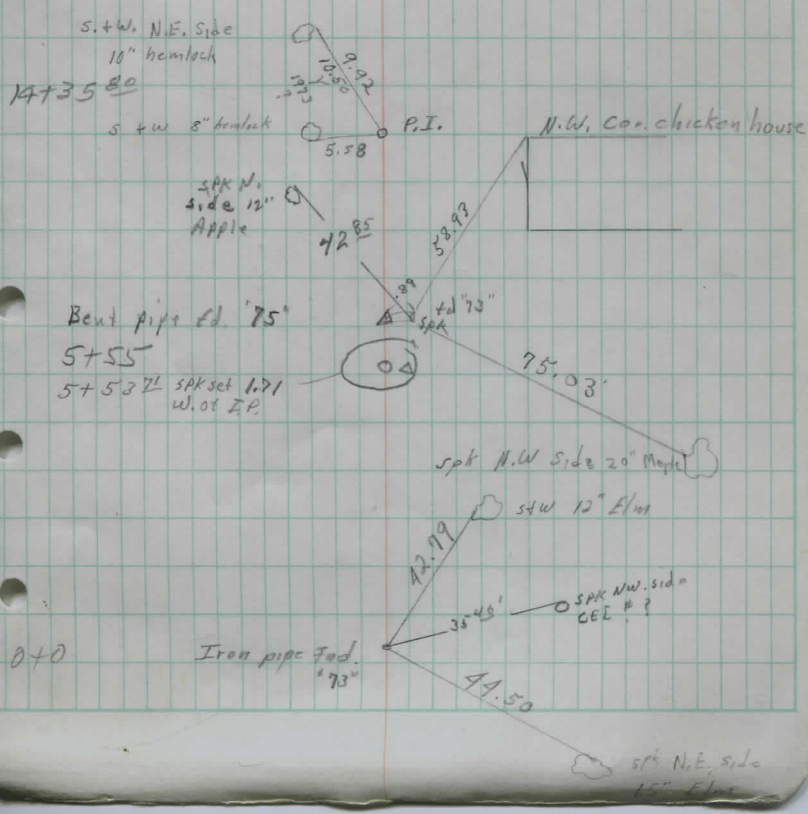 S.+W. N.E. Side
10" hemlock
9.92
10.50
1973
?
14+35 80
S +W 8" hemlock
5.58
P.I.
N.W. Cor. chicken house
SPK N.
side 12"
Apple
42 85
58.93
.89
fd "73"
spk
Bent pipe fd. "75"
5+55
5+53 71 spk set 1.71
W. of I.P.
75.03'
spk N.W side 20" Maple
s+w 12" Elm
42.79
35 45'
SPK NW. side
CEI # ?
0+0
Iron pipe Fnd.
"73"
44.50
spk N.E. side
15" Elm